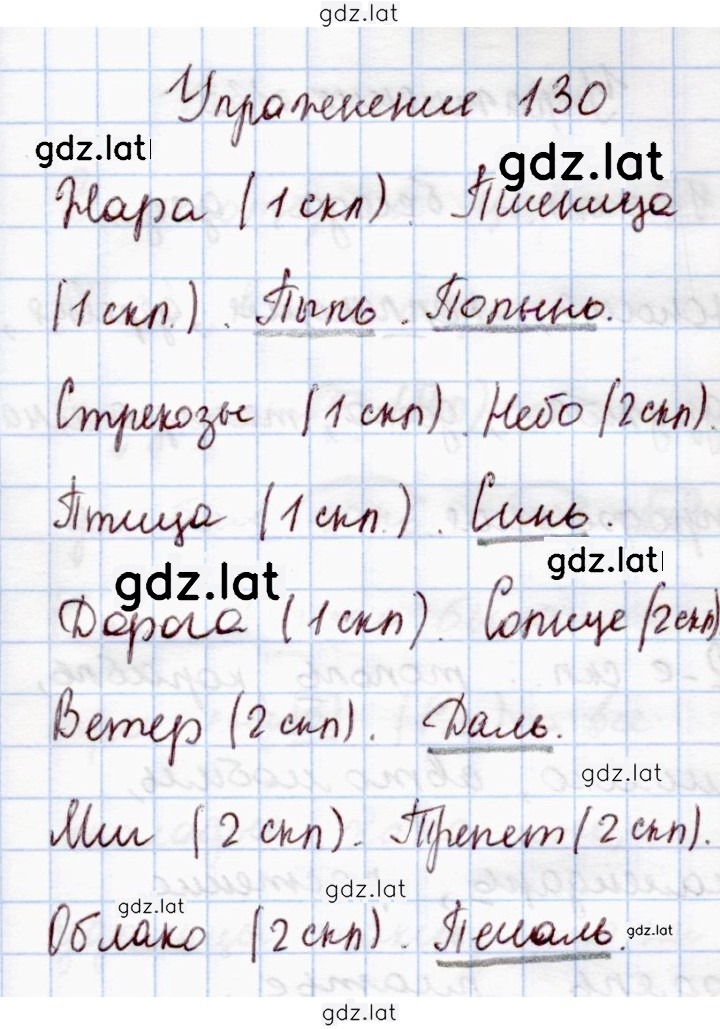 gdz.lat
Упражнение 130
gdz.lat gdz.lat
Жара (1 скл). Пшеница
(1 скл.). Пыль. Полынь.
Стрекозы (1 скл). Небо (2 скл).
Птица (1 скл.). Синь.
gdz.lat gdz.lat
Дорога (1 скл). Солнце (2 скл)
Ветер (2 скл). Даль.
gdz.lat
Миг (2 скл). Трепет (2 скл).
gdz.lat gdz.lat
Облако (2 скл). Печаль. gdz.lat
gdz.lat